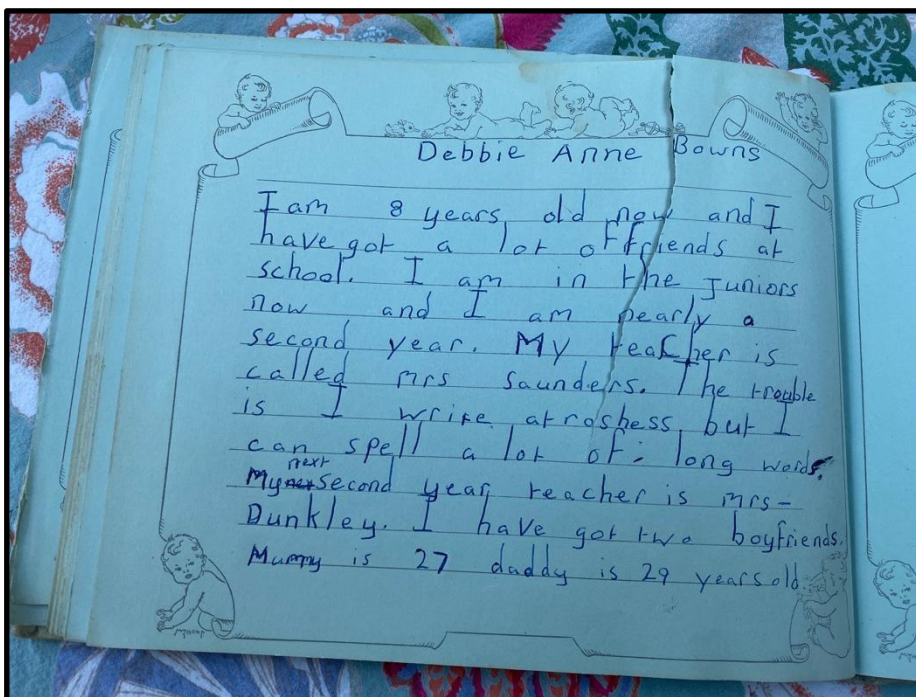 Debbie Anne Bowns
I am 8 years old now and I
have got a lot of friends at
school. I am in the Juniors
now and I am nearly a
second year. My teacher is
called mrs saunders. The trouble
is I write atroshess but I
can spell a lot of. long words.
My next second year teacher is mrs-
Dunkley. I have got two boyfriends.
Mummy is 27 daddy is 29 years old.